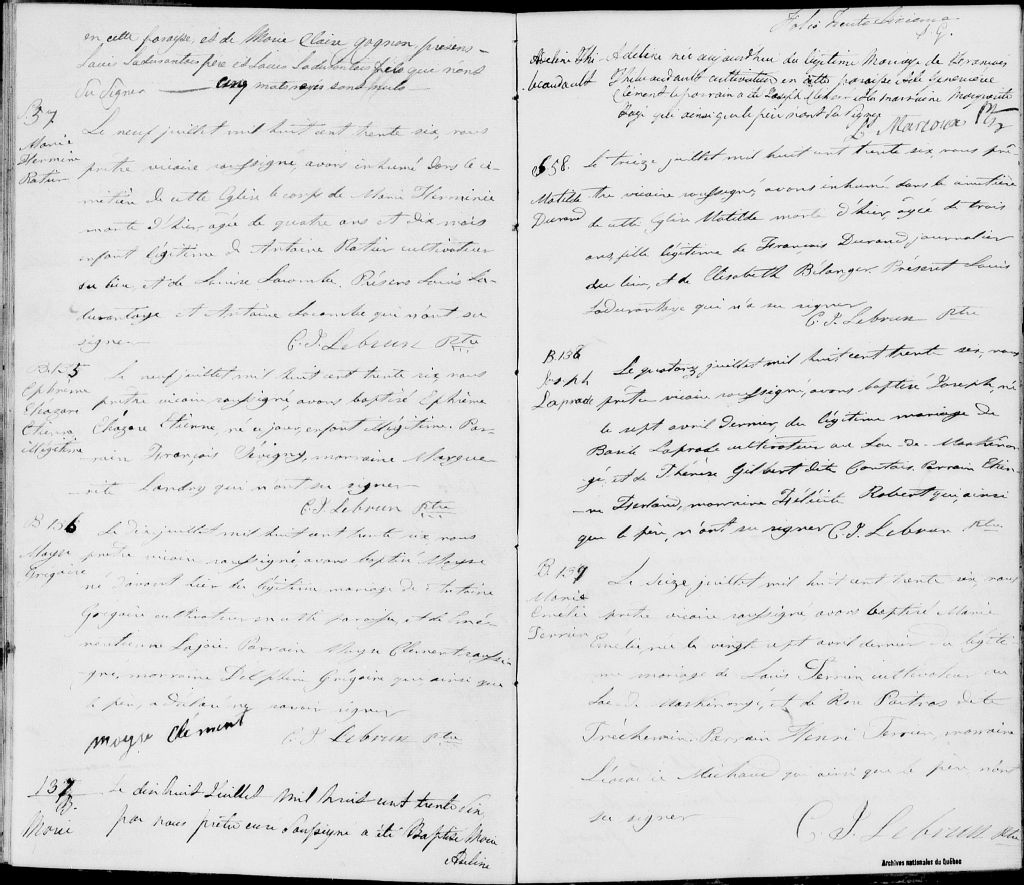 en cette paroisse, et de Marie Claire Gagnon, présens
Louis Ladurantais père et Louis Ladurantais fils qui n'ont
su signer cinq mots rayés sont nuls
S 57
Marie
Hermine
Ratier
Le neuf juillet mil huit cent trente six, nous
prêtre vicaire soussigné avons inhumé dans le ci-
metière de cette Eglise le corps de Marie Herminie
morte d'hier, agée de quatre ans et dix mois
enfant légitime de Antoine Ratier cultivateur
du lieu, et de Louise Lacombe. Présens Louis La-
durantaye et Antoine Lacombe qui n'ont su
signer
C. J. Lebrun Ptre
B. 135
Ephrème
Eléazare
Etienne
Illégitime
Le neuf juillet mil huit cent trente six, nous
prêtre vicaire soussigné, avons baptisé Ephrème
Eléazare Etienne, né ce jour, enfant illégitime. Par-
rain François Sévigny, marraine Margue-
rite Landry qui n'ont su signer
C. J. Lebrun Ptre
B 136
Moyse
Grégoire
Le dix juillet mil huit cent trente six nous
prêtre vicaire soussigné, avons baptisé Moyse
né d'avant hier du légitime mariage de Antoine
Grégoire cultivateur en cette paroisse, et de Emé-
rentienne Lajoie. Parrain Moyse Clement soussi-
gné, marraine Delphine Grégoire qui, ainsi que
le père, a déclaré ne savoir signer
moyse Clément
C. J. Lebrun Ptre
137
B.
Marie
Le dix huit Juillet mil huit cent trente six
par nous prêtre curé soussigné a été Baptisé Marie
Adeline
Folio Trente Sixieme
Adeline Thi-
beaudault
Adeline née aujourdhui du légitime Mariage de
Thibeaudault cultivateur en cette paroisse et de Geneviève
Clement le parrain a été Joseph et la marraine Marguerite
qui ainsi que le père n'ont su signer
L. Marcoux Ptre
S 58.
Matilde
Durand
Le treize juillet mil huit cent trente six, nous prê-
tre vicaire soussigné, avons inhumé dans le cimetière
de cette Eglise Matilde morte d'hier, agée de trois
ans, fille légitime de François Durand, journalier
du lieu, et de Elisabeth Bélanger. Présent Louis
Ladurantaye qui n'a su signer
C. J. Lebrun Ptre
B. 138
Joseph
Laprade
Le quatorze juillet mil huit cent trente six, nous
prêtre vicaire soussigné, avons baptisé Joseph, né
le sept avril dernier, du légitime mariage de
Basile Laprade cultivateur au Lac de Maskinon-
gé, et de Thérèse Gilbert dite Comtois. Parrain Etien-
ne marraine Félicité Robert qui, ainsi
que le père, n'ont su signer C. J. Lebrun Ptre
B. 139
Marie
Emélie
Terrien
Le seize juillet mil huit cent trente six, nous
prêtre vicaire soussigné avons baptisé Marie
Emélie, née le vingt sept avril dernier du légiti-
me mariage de Louis Terrien cultivateur au
Lac de Maskinongé, et de Rose Poitras dite
Parrain Henri Terrien, marraine
Michaud qui ainsi que le père, n'ont
su signer
C. J. Lebrun Ptre
Archives nationales du Québec